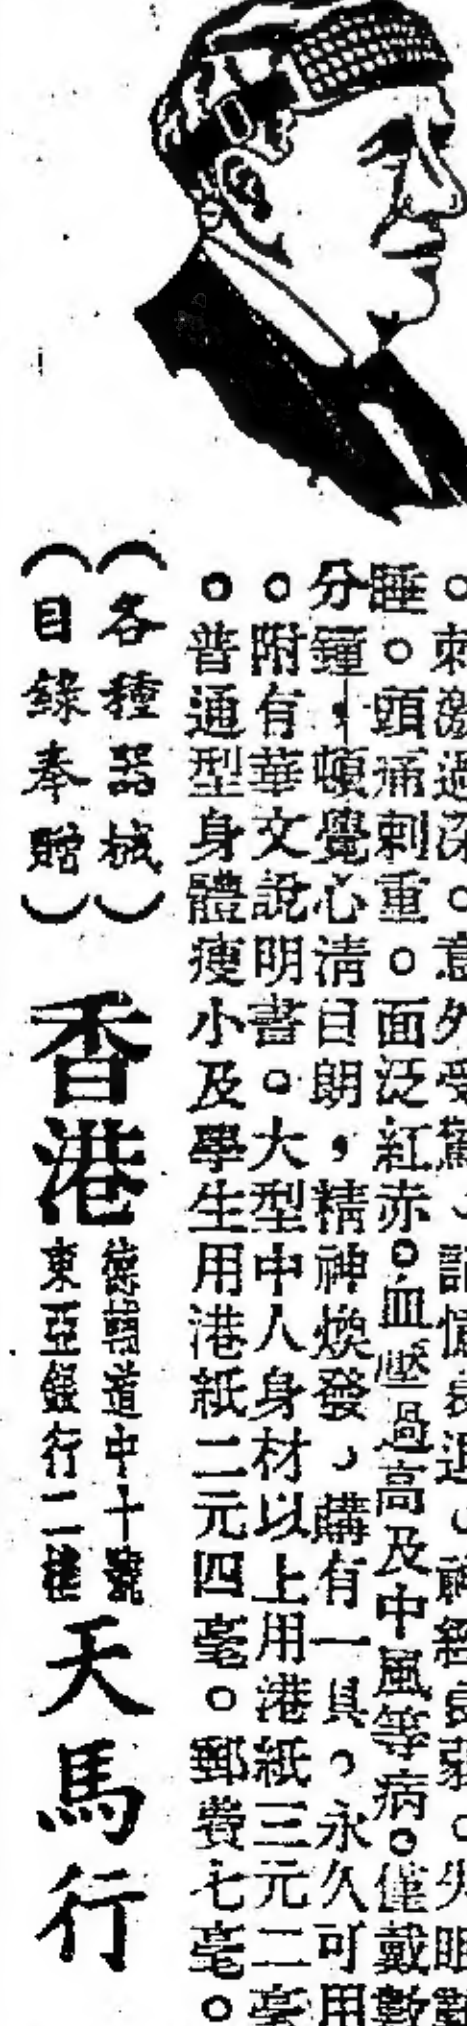 。刺激過深。意外受驚、記憶衰退、神經衰弱。失眠難
睡。頭痛刺重。面泛紅赤。血壓過高及中風等病。僅戴數
分鐘,頓覺心清目朗,精神煥發,購有一具,永久可用
。附有華文說明書。大型中人身材以上用港紙三元二毫
。普通型身體瘦小及學生用港紙二元四毫。郵費七毫。
(各種器械)
(目錄奉贈)
香港
德輔道中十號
東亞銀行二樓
天馬行